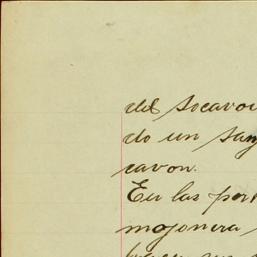 del Socavon
do un san
cavon.
En las per
mojonera